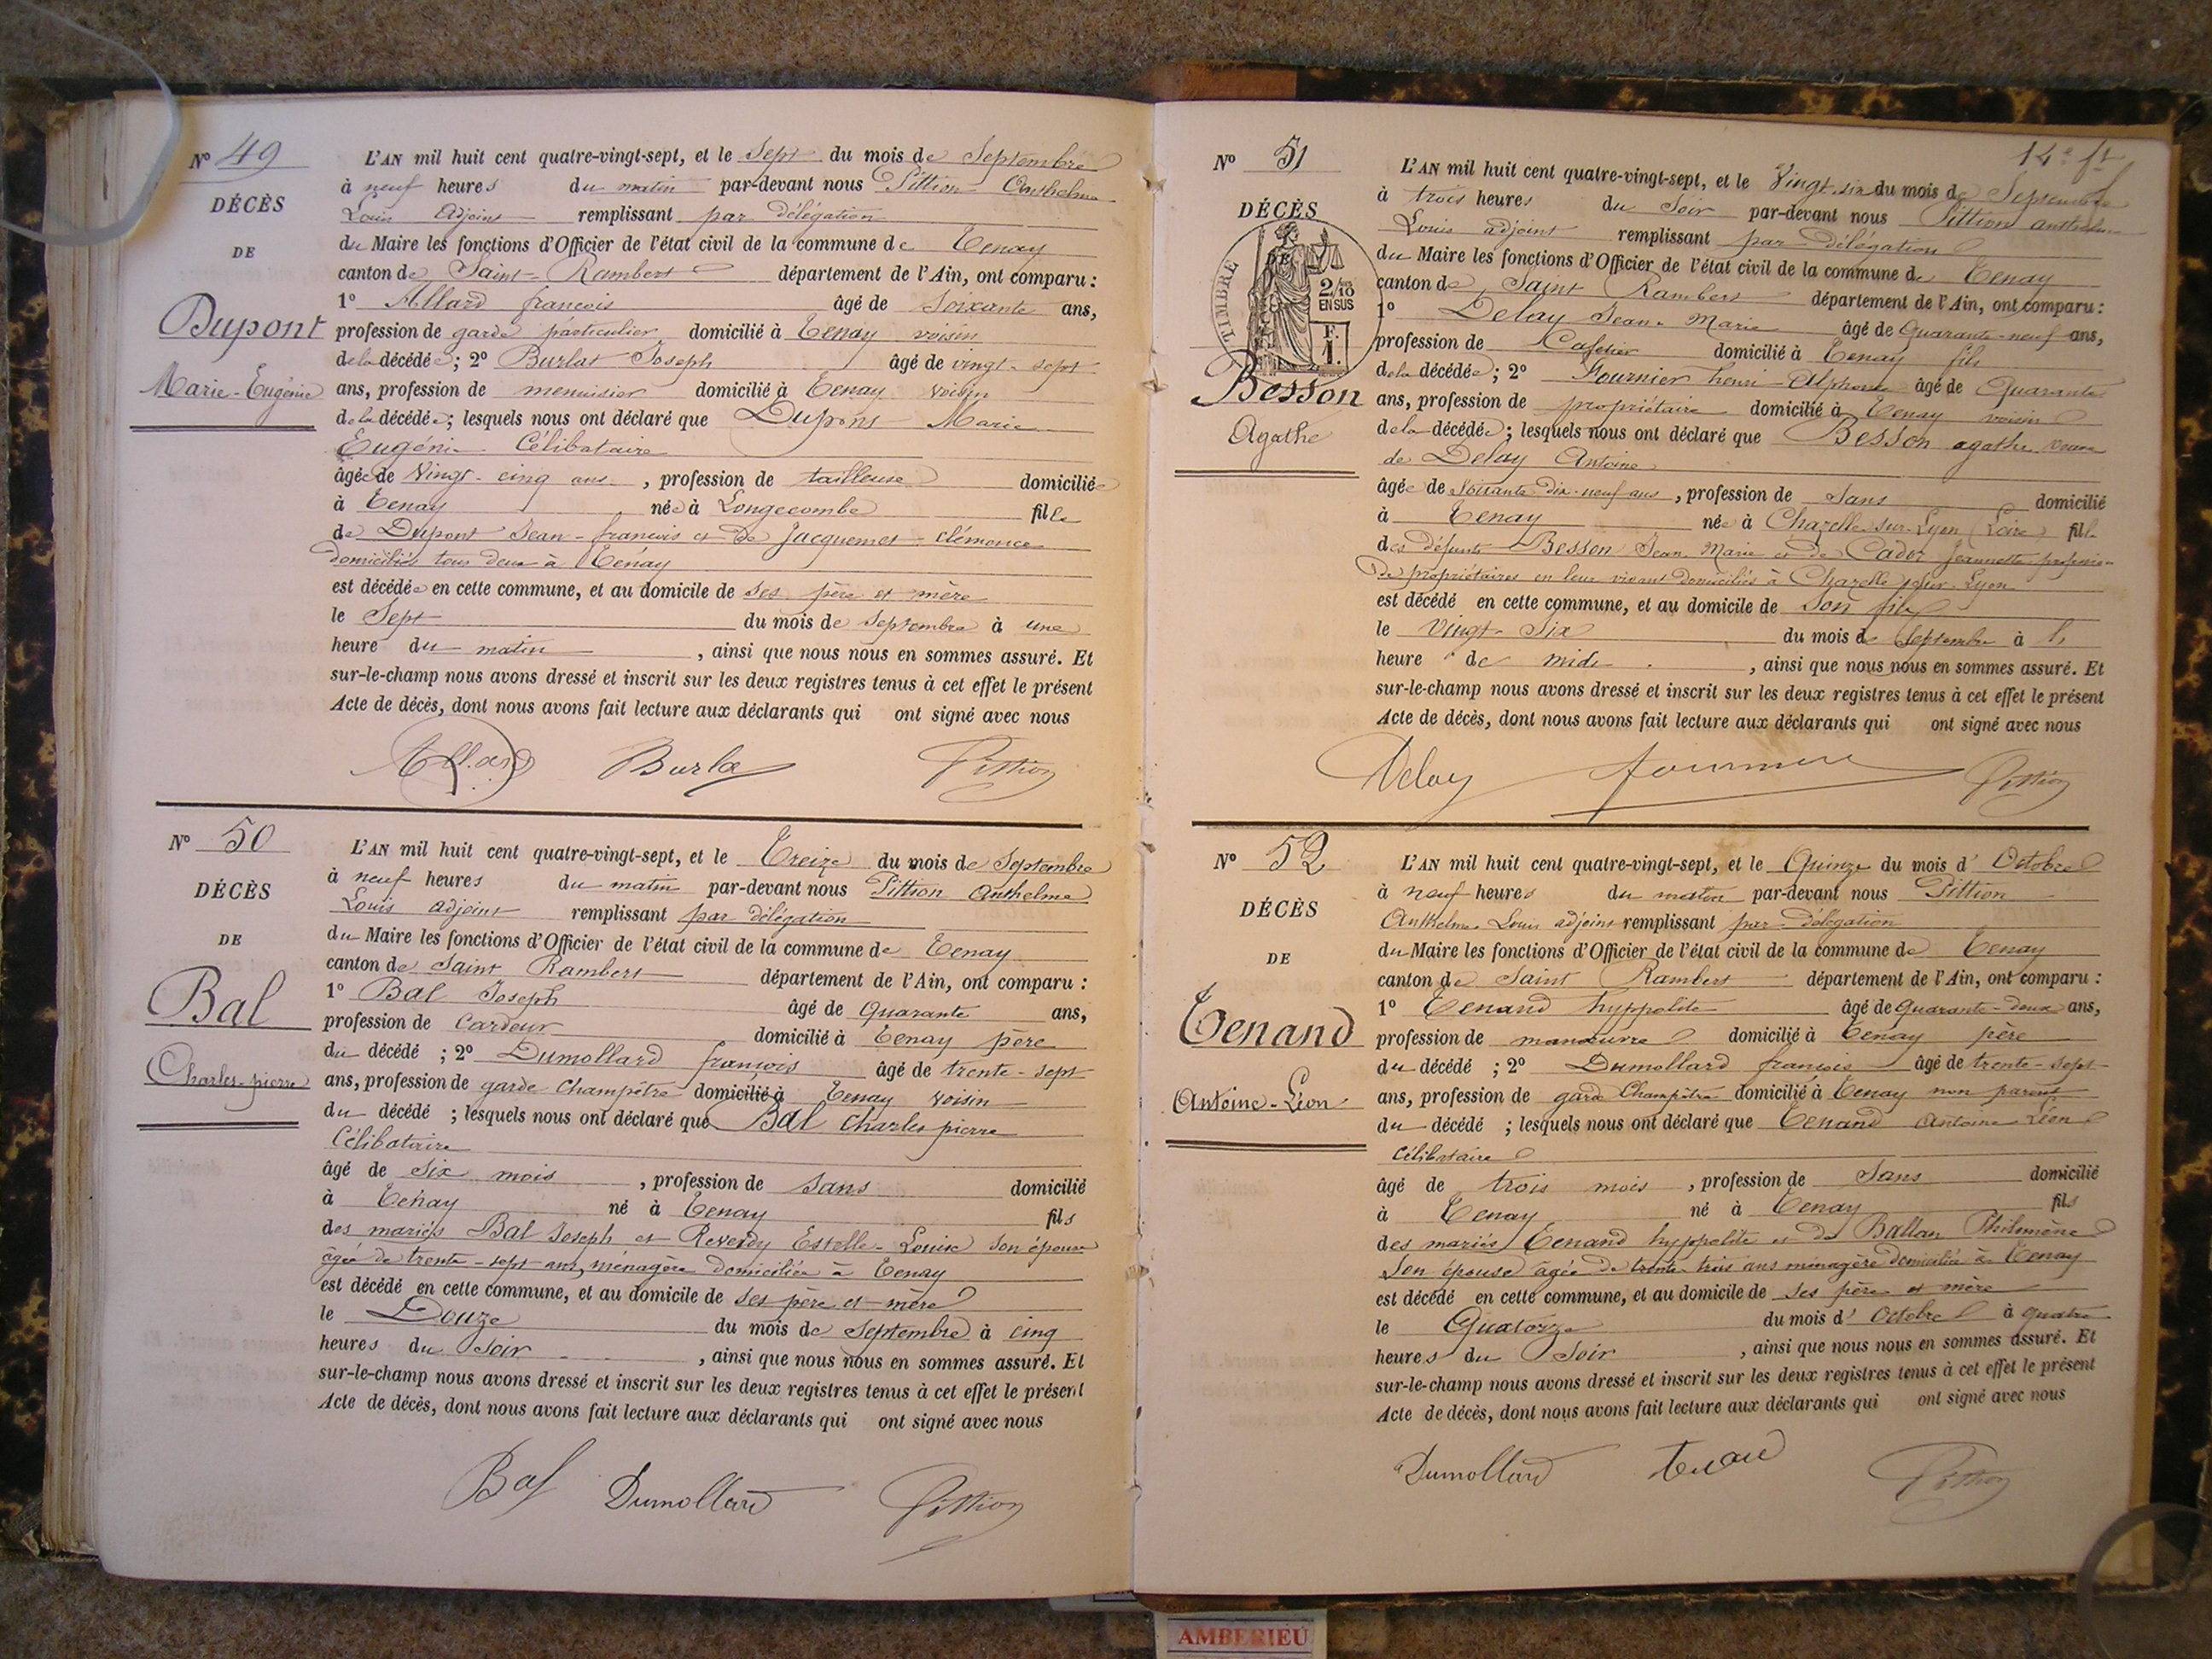 Nº 49
DÉCÈS
DE
Dupont
Marie-Eugénie
L'AN mil huit cent quatre-vingt-sept, et le Sept du mois de Septembre
à neuf heures du matin par-devant nous Pittion Anthelme
Louis Adjoint remplissant par délégation
du Maire les fonctions d'Officier de l'état civil de la commune de Tenay
canton de Saint-Rambert département de l'Ain, ont comparu :
1º Allard françois âgé de Soixante ans,
profession de garde particulier domicilié à Tenay voisin
de la décédée ; 2º Burlat Joseph âgé de vingt-sept
ans, profession de menuisier domicilié à Tenay voisin
de la décédée ; lesquels nous ont déclaré que Dupont Marie
Eugénie Célibataire
âgée de Vingt-cinq ans , profession de tailleuse domiciliée
à Tenay née à Longecombe fille
de Dupont Jean-françois et de Jacquemet Clémence
domiciliés tous deux à Tenay
est décédée en cette commune, et au domicile de ses père et mère
le Sept du mois de Septembre à une
heure du matin , ainsi que nous nous en sommes assuré. Et
sur-le-champ nous avons dressé et inscrit sur les deux registres tenus à cet effet le présent
Acte de décès, dont nous avons fait lecture aux déclarants qui ont signé avec nous
Allard Burla Pittion
Nº 50
DÉCÈS
DE
Bal
Charles-pierre
L'AN mil huit cent quatre-vingt-sept, et le Treize du mois de Septembre
à neuf heures du matin par-devant nous Pittion Anthelme
Louis adjoint remplissant par délégation
du Maire les fonctions d'Officier de l'état civil de la commune de Tenay
canton de Saint Rambert département de l'Ain, ont comparu :
1º Bal Joseph âgé de Quarante ans,
profession de Cardeur domicilié à Tenay père
du décédé ; 2º Dumollard françois âgé de trente-sept
ans, profession de garde Champêtre domicilié à Tenay voisin
du décédé ; lesquels nous ont déclaré que Bal Charles pierre
Célibataire
âgé de Six mois , profession de Sans domicilié
à Tenay né à Tenay fils
des mariés Bal Joseph et Reverdy Estelle-Louise Son épouse
âgée de trente-sept ans, ménagère domiciliée à Tenay
est décédé en cette commune, et au domicile de ses père et mère
le Douze du mois de Septembre à cinq
heures du Soir , ainsi que nous nous en sommes assuré. Et
sur-le-champ nous avons dressé et inscrit sur les deux registres tenus à cet effet le présent
Acte de décès, dont nous avons fait lecture aux déclarants qui ont signé avec nous
Bal Dumollard Pittion
14e ft
Nº 51
DÉCÈS
DE
TIMBRE
2/10
EN SUS
F.
1.
Besson
Agathe
L'AN mil huit cent quatre-vingt-sept, et le Vingt-six du mois de Septembre
à trois heures du Soir par-devant nous Pittion anthelme
Louis adjoint remplissant par délégation
du Maire les fonctions d'Officier de l'état civil de la commune de Tenay
canton de Saint Rambert département de l'Ain, ont comparu :
1º Delay Jean-Marie âgé de Quarante-neuf ans,
profession de Cafetier domicilié à Tenay fils
de la décédée ; 2º Fournier henri-Alphonse âgé de Quarante
ans, profession de propriétaire domicilié à Tenay voisin
de la décédée ; lesquels nous ont déclaré que Besson agathe veuve
de Delay Antoine
âgée de Soixante dix-neuf ans , profession de Sans domicilié
à Tenay née à Chazelle sur-Lyon (Loire) fille
des défunts Besson Jean Marie et de Cador Jeannette
de propriétaires en leur vivant domiciliés à Chazelle sur Lyon
est décédé en cette commune, et au domicile de Son fils
le Vingt-Six du mois de Septembre à l'
heure de midi , ainsi que nous nous en sommes assuré. Et
sur-le-champ nous avons dressé et inscrit sur les deux registres tenus à cet effet le présent
Acte de décès, dont nous avons fait lecture aux déclarants qui ont signé avec nous
Delay fournier Pittion
Nº 52
DÉCÈS
DE
Tenand
Antoine-Léon
L'AN mil huit cent quatre-vingt-sept, et le Quinze du mois d' Octobre
à neuf heures du matin par-devant nous Pittion
Anthelme Louis adjoint remplissant par délégation
du Maire les fonctions d'Officier de l'état civil de la commune de Tenay
canton de Saint Rambert département de l'Ain, ont comparu :
1º Tenand hyppolite âgé de Quarante-deux ans,
profession de manœuvre domicilié à Tenay père
du décédé ; 2º Dumollard françois âgé de trente-sept
ans, profession de garde Champêtre domicilié à Tenay non parent
du décédé ; lesquels nous ont déclaré que Tenand Antoine Léon
Célibataire
âgé de trois mois , profession de Sans domicilié
à Tenay né à Tenay fils
des mariés Tenand hyppolite et de Ballan Philomène
Son épouse âgée de trente-trois ans ménagère domiciliés à Tenay
est décédé en cette commune, et au domicile de ses père et mère
le Quatorze du mois d' Octobre à quatre
heures du Soir , ainsi que nous nous en sommes assuré. Et
sur-le-champ nous avons dressé et inscrit sur les deux registres tenus à cet effet le présent
Acte de décès, dont nous avons fait lecture aux déclarants qui ont signé avec nous
Dumollard Pittion
AMBERIEU